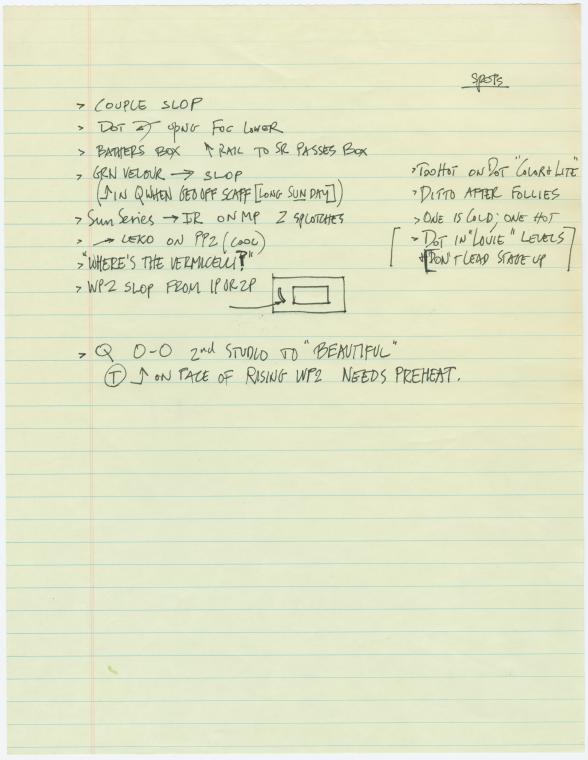 SPOTS
> COUPLE SLOP
> DOT OPNG FOG LOWER
> BATHERS BOX ↑ RAIL TO SR PASSES BOX
> GRN VELOUR → SLOP
(↑ IN Q WHEN GEO OFF SCAFF [LONG SUNDAY])
> SUN SERIES → IR ON MP 2 SPLOTCHES
> → LEKO ON PP2 (COOL)
> "WHERE'S THE VERMICELLI?"
> WP2 SLOP FROM 1P OR 2P
> TOO HOT ON DOT "COLOR & LITE"
> DITTO AFTER FOLLIES
> ONE IS COLD; ONE HOT
> DOT IN "LOUIE" LEVELS
DON'T LEAD STAGE UP
> Q O-O 2nd STUDIO TO "BEAUTIFUL"
(T) ↑ ON FACE OF RISING WP2 NEEDS PREHEAT.